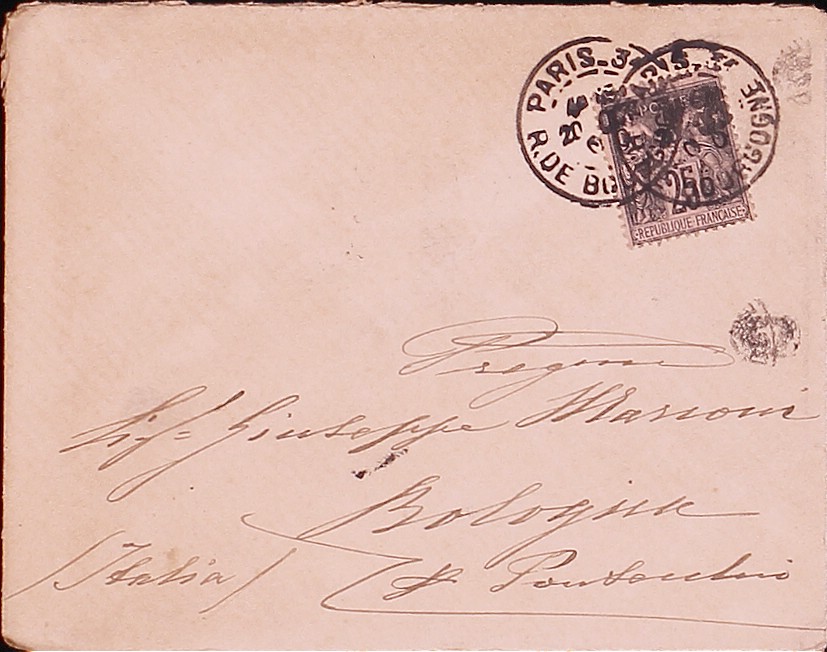 PARIS_3
R. DE BO
20
POSTES
25
REPUBLIQUE FRANÇAISE
Pregmo
Sigr Giuseppe Marconi
Bologna
(Italia)
(x Pontecchio